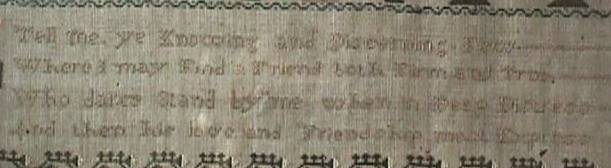 Tell me ye Knowing and Discerning Few
Where I may Find a Friend both Firm and True
Who dares Stand by me when in Deep Distress
And then his Love and Friendship most Express